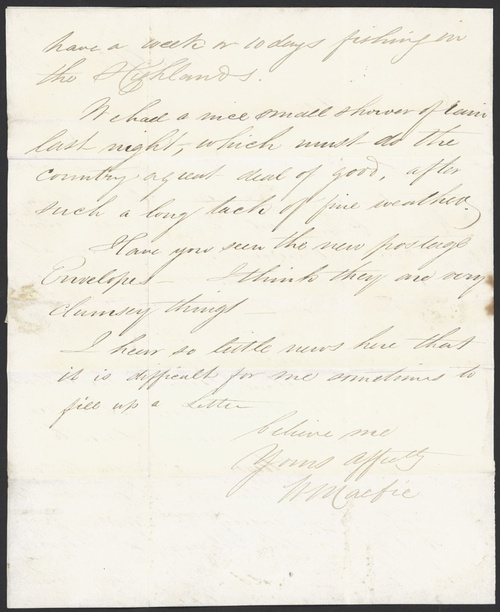 have a week or 10 days fishing in
the Highlands.
We had a nice small shower of rain
last night, which must do the
country a great deal of good, after
such a long tack of fine weather.
Have you seen the new postage
Envelopes — I think they are very
clumsey things —
I hear so little news here that
it is difficult for me sometimes to
fill up a Letter
believe me
Yours affectly
W Macfie